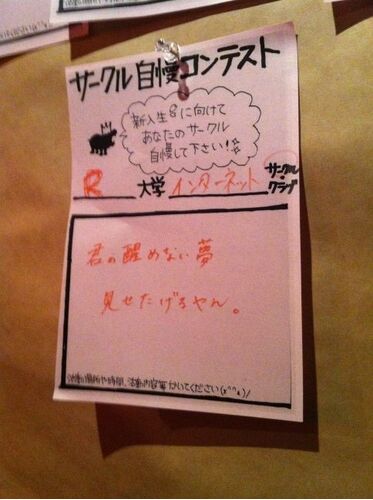 サークル自慢コンテスト
新入生に向けて
あなたのサークル
自慢して下さい!
R 大学 インターネット サークル・クラブ
君の醒めない夢
見せたげるやん。
活動場所や時間、活動内容等書いてください(^^)/